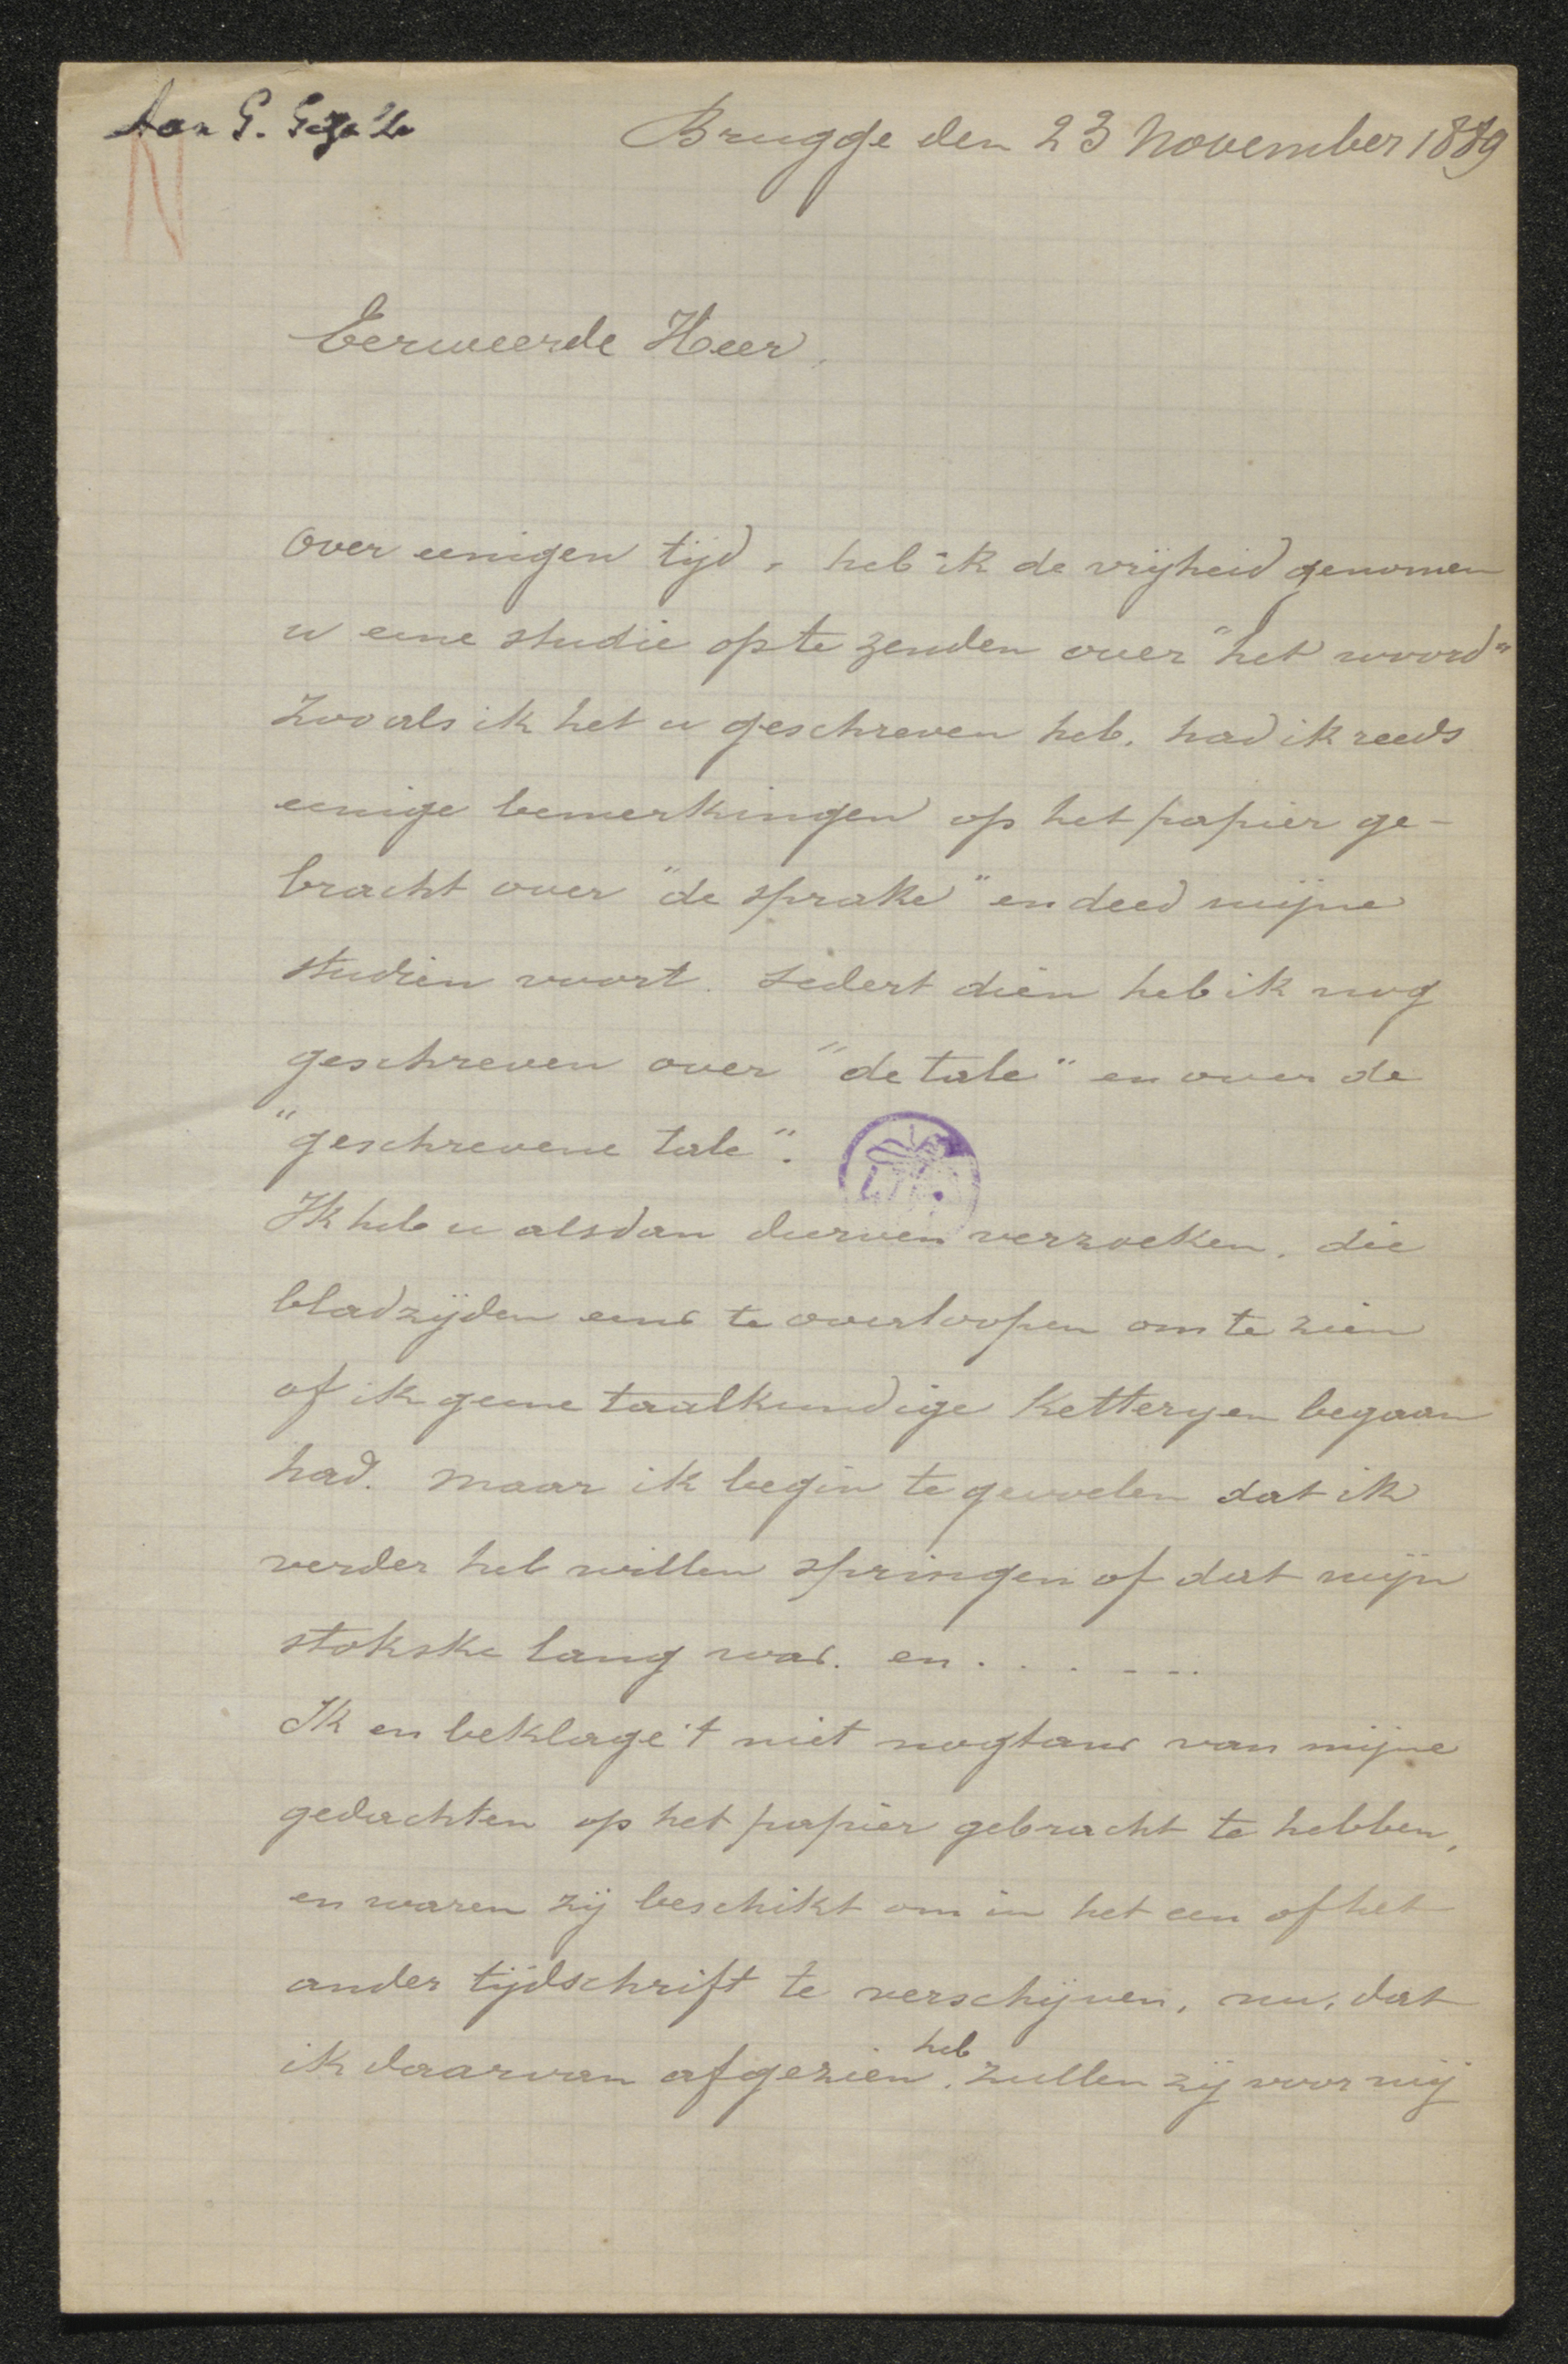 Aan G. Gezelle
N
Brugge den 23 November 1889
Eerweerde Heer,
Over eenigen tijd, heb ik de vrijheid genomen
u eene studie op te zenden over "het woord"
Zooals ik het u geschreven heb, had ik reeds
eenige bemerkingen op het papier ge-
bracht over "de sprake" en deed mijne
studien voort. Sedert dien heb ik nog
geschreven over "de tale" en over de
"geschrevene tale".
Ik heb u alsdan durven verzoeken, die
bladzijden eens te overloopen om te zien
of ik geene taalkundige ketteryen begaan
had. Maar ik begin te gevoelen dat ik
verder heb willen springen of dat mijn
stokske lang was. en . . . . . .
Ik en beklage 't niet nogtans van mijne
gedachten op het papier gebracht te hebben,
en waren zij beschikt om in het een of het
ander tijdschrift te verschijnen, nu, dat
ik daarvan afgezien heb, zullen zij voor mij